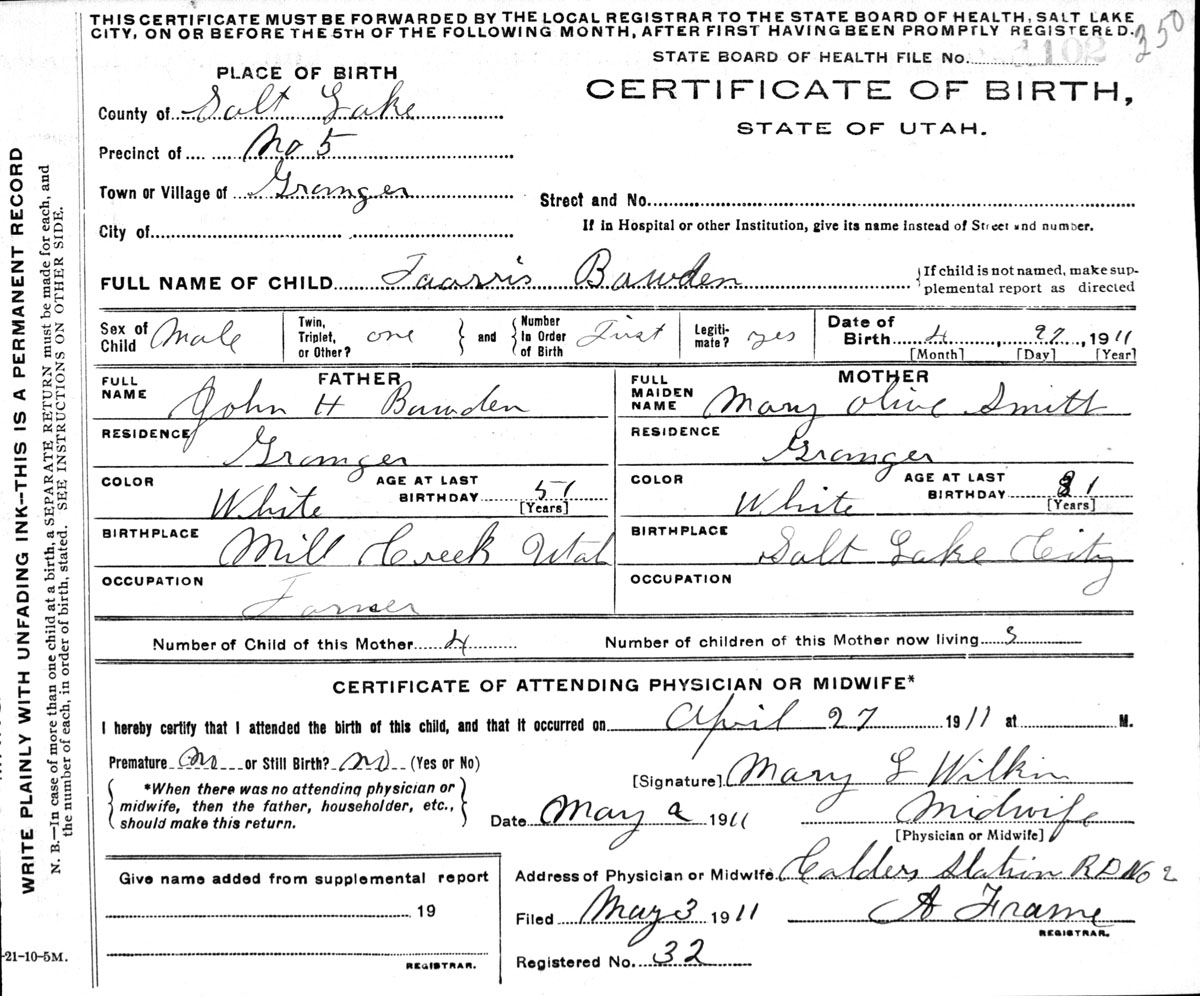 THIS CERTIFICATE MUST BE FORWARDED BY THE LOCAL REGISTRAR TO THE STATE BOARD OF HEALTH, SALT LAKE
CITY, ON OR BEFORE THE 5TH OF THE FOLLOWING MONTH, AFTER FIRST HAVING BEEN PROMPTLY REGISTERED.
350
STATE BOARD OF HEALTH FILE No. 1102
PLACE OF BIRTH
CERTIFICATE OF BIRTH,
STATE OF UTAH.
County of Salt Lake
Precinct of No 5
Town or Village of Granger
Street and No.
City of
If in Hospital or other Institution, give its name instead of Street and number.
FULL NAME OF CHILD Bawden
If child is not named, make sup-
plemental report as directed
Sex of Child Male
Twin, Triplet, or Other? one
and
Number In Order of Birth First
Legiti-mate? yes
Date of Birth 4, 27, 1911
[Month] [Day] [Year]
FATHER
FULL NAME John H Bawden
RESIDENCE Granger
COLOR White
AGE AT LAST BIRTHDAY 51 [Years]
BIRTHPLACE Mill Creek Utah
OCCUPATION Farmer
MOTHER
FULL MAIDEN NAME Mary Olive Smith
RESIDENCE Granger
COLOR White
AGE AT LAST BIRTHDAY [Years]
BIRTHPLACE Salt Lake City
OCCUPATION
Number of Child of this Mother 4
Number of children of this Mother now living 3
CERTIFICATE OF ATTENDING PHYSICIAN OR MIDWIFE*
I hereby certify that I attended the birth of this child, and that it occurred on April 27 1911 at M.
Premature no or Still Birth? no (Yes or No)
*When there was no attending physician or
midwife, then the father, householder, etc.,
should make this return.
[Signature] Mary L Wilkin
Date May 2 1911
Midwife
[Physician or Midwife]
Give name added from supplemental report
19
REGISTRAR.
Address of Physician or Midwife Calders Station RD No 2
Filed May 3 1911
A Frame
REGISTRAR.
Registered No. 32
WRITE PLAINLY WITH UNFADING INK—THIS IS A PERMANENT RECORD
N. B.—In case of more than one child at a birth, a SEPARATE RETURN must be made for each, and
the number of each, in order of birth, stated. SEE INSTRUCTIONS ON OTHER SIDE.
-21-10-5M.